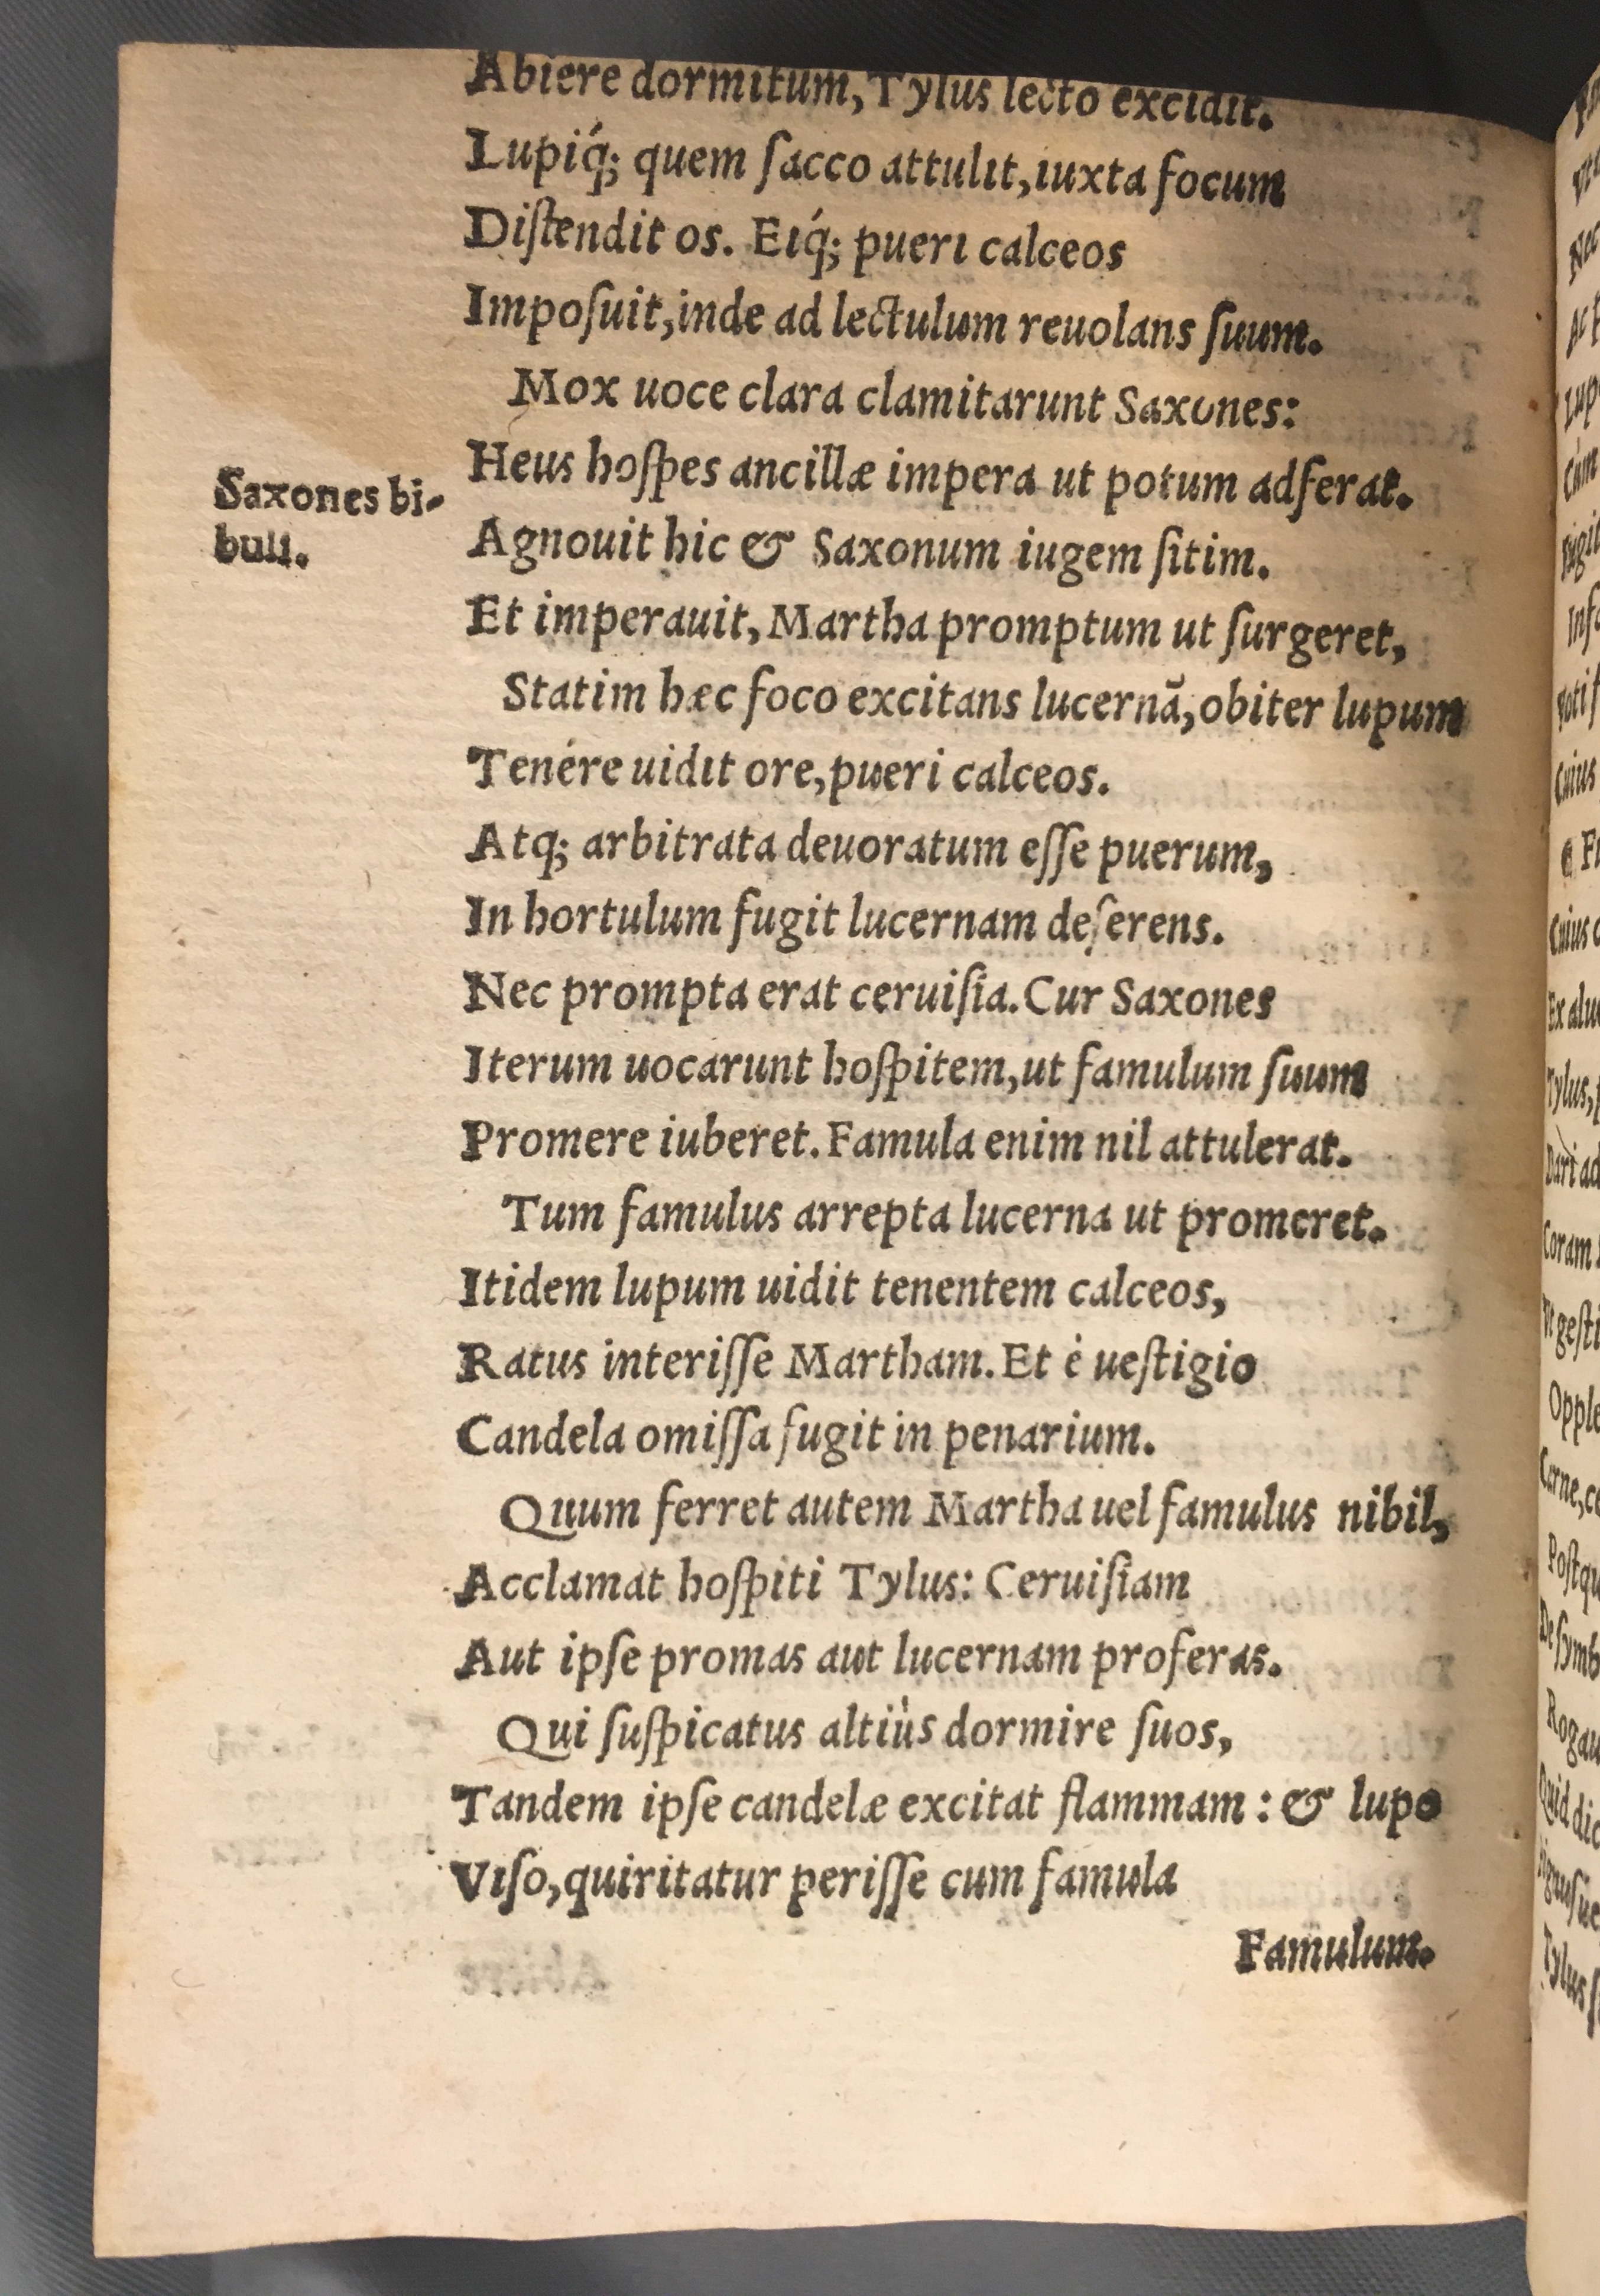 Abiere dormitum, Tylus lecto excidit.
Lupiq́; quem ſacco attulit, iuxta focum
Diſtendit os. Eiq́; pueri calceos
Impoſuit, inde ad lectulum reuolans ſuum.
Mox uoce clara clamitarunt Saxones:
Heus hoſpes ancillæ impera ut potum adferat.
Saxones bi-
buli.
Agnouit hic & Saxonum iugem ſitim.
Et imperauit, Martha promptum ut ſurgeret,
Statim hæc foco excitans lucernã, obiter lupum
Tenére uidit ore, pueri calceos.
Atq; arbitrata deuoratum eſſe puerum,
In hortulum fugit lucernam deſerens.
Nec prompta erat ceruiſia. Cur Saxones
Iterum uocarunt hoſpitem, ut famulum ſuum
Promere iuberet. Famula enim nil attulerat.
Tum famulus arrepta lucerna ut promeret.
Itidem lupum uidit tenentem calceos,
Ratus interiſſe Martham. Et è ueſtigio
Candela omiſſa fugit in penarium.
Quum ferret autem Martha uel famulus nihil,
Acclamat hoſpiti Tylus: Ceruiſiam
Aut ipſe promas aut lucernam proferas.
Qui ſuſpicatus altiùs dormire ſuos,
Tandem ipſe candelæ excitat flammam: & lupo
Viſo, quiritatur periſſe cum famula
Famulum.